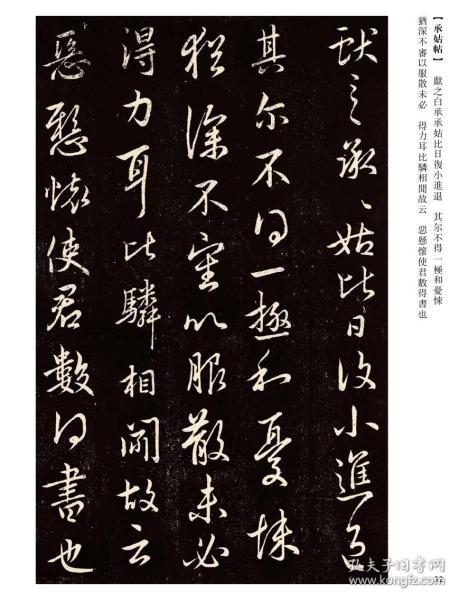 【承姑帖】 獻之白承承姑比日復小進退 其尔不得一極和憂悚
猶深不審以服散未必 得力耳比驎相聞故云 惡懸懷使君數得書也
獻之承〻姑比日復小進退
其尔不得一極和憂悚
猶深不審以服散未必
得力耳比驎相聞故云
惡懸懷使君數得書也
32
孔夫子旧书网
www.kongfz.com